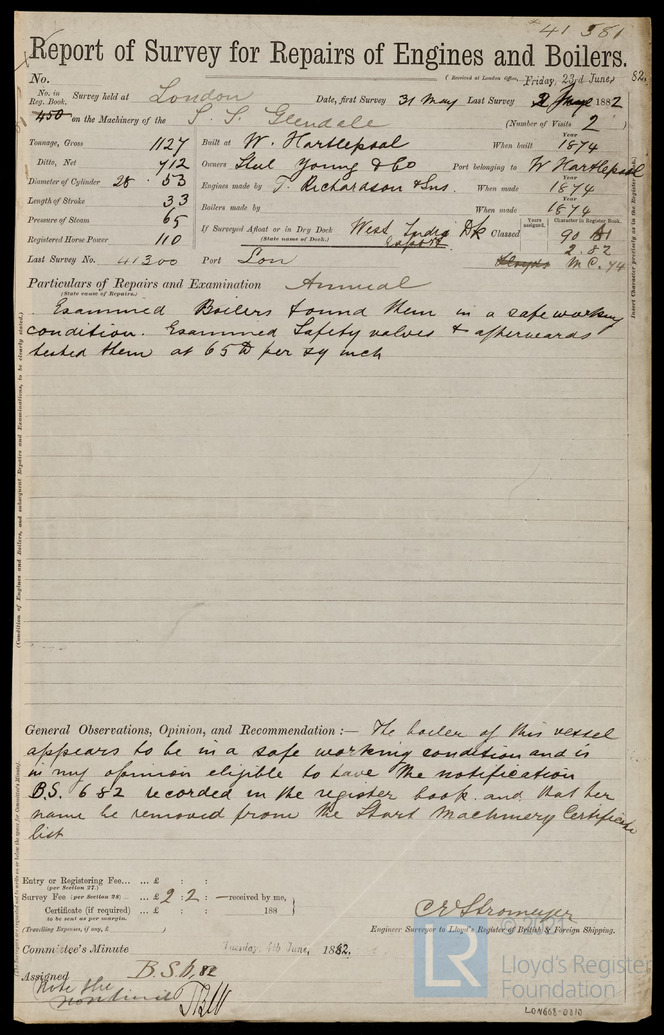 41581
Report of Survey for Repairs of Engines and Boilers.
(Received at London Office, Friday, 23rd June, 82.
No.
No. in Reg. Book. Survey held at London Date, first Survey 31 May Last Survey 1882
450 on the Machinery of the S. S. Glendale (Number of Visits 2 )
Tonnage, Gross 1127
Ditto, Net 712
Diameter of Cylinder 28 . 53
Length of Stroke 33
Pressure of Steam 65
Registered Horse Power 110
Last Survey No. 41300
Built at W. Hartlepool When built Year 1874
Owners Young & Co Port belonging to W Hartlepool
Engines made by T. Richardson & Sns. When made Year 1874
Boilers made by When made Year 1874
If Surveyed Afloat or in Dry Dock West India Dk
(State name of Dock.) Export
Classed Years assigned. Character in Register Book.
90 A1
2.82
M C. 74
Port Lon
Particulars of Repairs and Examination Annual
(State cause of Repairs.)
Examined Boilers found them in a safe working
condition. Examined Safety valves & afterwards
tested them at 65 lb per sq inch
General Observations, Opinion, and Recommendation :— The boiler of this vessel
appears to be in a safe working condition and is
in my opinion eligible to have the notification
B.S. 6 82 recorded in the register book and that her
name be removed from the Start Machinery Certificate
list
Entry or Registering Fee... ... £ : :
(per Section 27.)
Survey Fee (per Section 28) ... £ 2 : 2 : —received by me,
Certificate (if required) ... £ : : 188
to be sent as per margin.
(Travelling Expenses, if any, £ )
C E Stromeyer
Engineer Surveyor to Lloyd's Register of British & Foreign Shipping.
Committee's Minute Tuesday, 4th June, 1882.
Assigned B.S 6,82
Note the
© 2021
LR
Lloyd's Register
Foundation
LON668-0810
(Condition of Engines and Boilers, and subsequent Repairs and Examinations, to be clearly stated.)